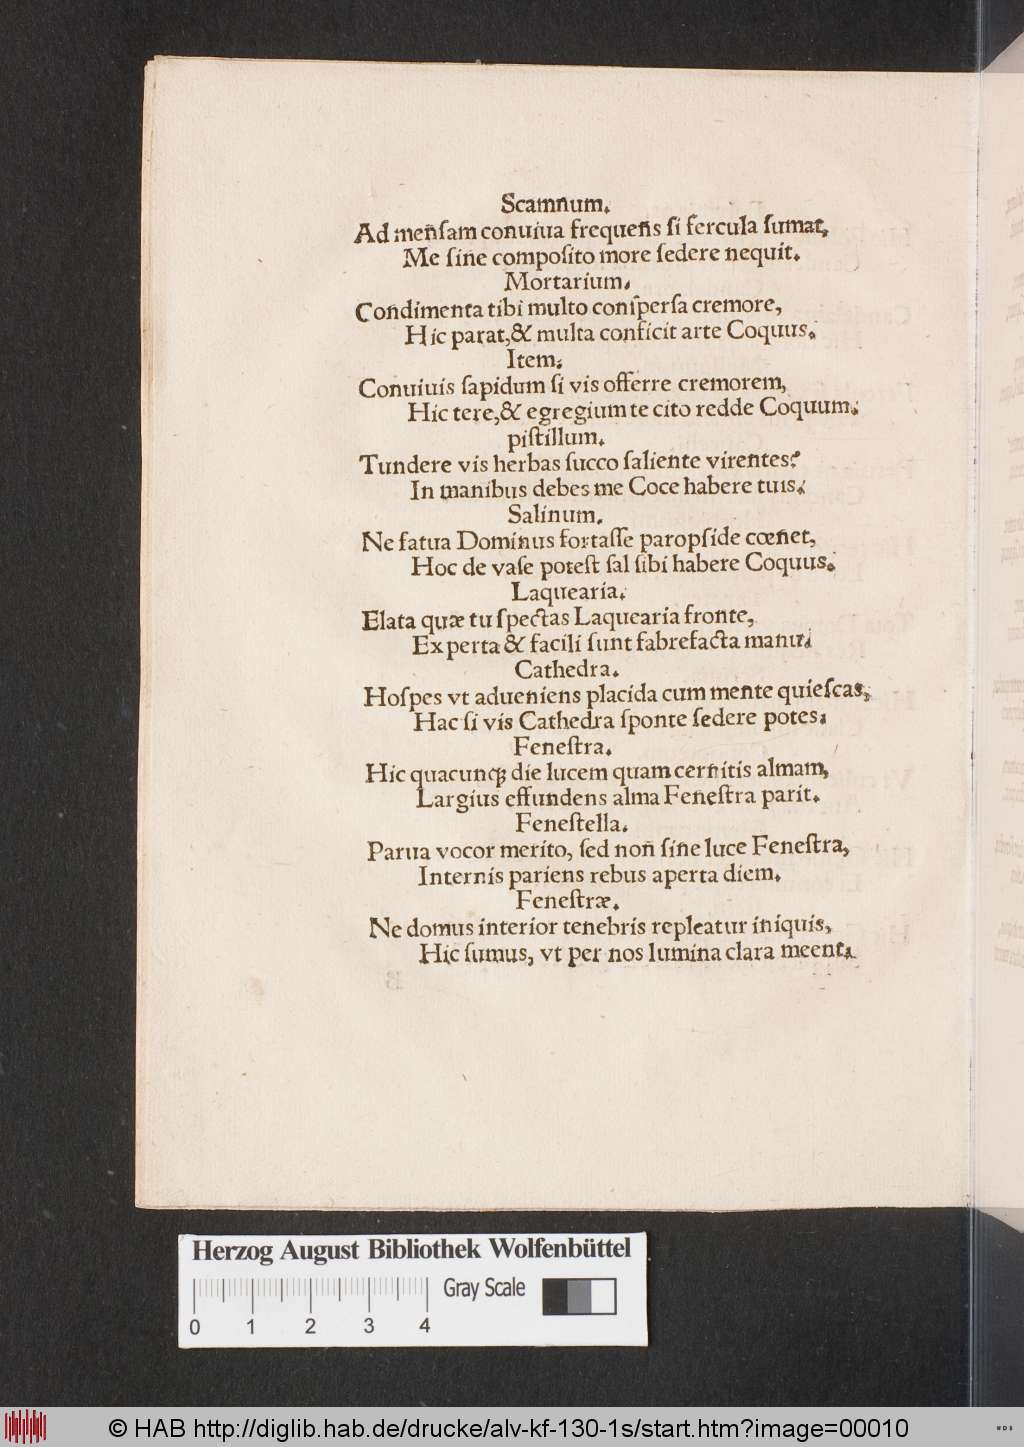 Scamnum.
Ad menſam conuiua frequens ſi fercula ſumat,
Me ſine compoſito more ſedere nequit.
Mortarium.
Condimenta tibi multo conſperſa cremore,
Hic parat, & multa conficit arte Coquus.
Item.
Conuiuis ſapidum ſi vis offerre cremorem,
Hic tere, & egregium te cito redde Coquum.
piſtillum.
Tundere vis herbas ſucco ſaliente virentes?
In manibus debes me Coce habere tuis.
Salinum.
Ne fatua Dominus fortaſſe paropſide cœnet,
Hoc de vaſe poteſt ſal ſibi habere Coquus.
Laquearia.
Elata quæ tu ſpectas Laquearia fronte,
Experta & facili ſunt fabrefacta manu.
Cathedra.
Hoſpes vt adueniens placida cum mente quieſcas,
Hac ſi vis Cathedra ſponte ſedere potes.
Feneſtra.
Hic quacunqꝫ die lucem quam cernitis almam,
Largius effundens alma Feneſtra parit.
Feneſtella.
Parua vocor merito, ſed non ſine luce Feneſtra,
Internis pariens rebus aperta diem.
Feneſtræ.
Ne domus interior tenebris repleatur iniquis,
Hic ſumus, vt per nos lumina clara meent.
Herzog August Bibliothek Wolfenbüttel
Gray Scale
0 1 2 3 4
© HAB http://diglib.hab.de/drucke/alv-kf-130-1s/start.htm?image=00010